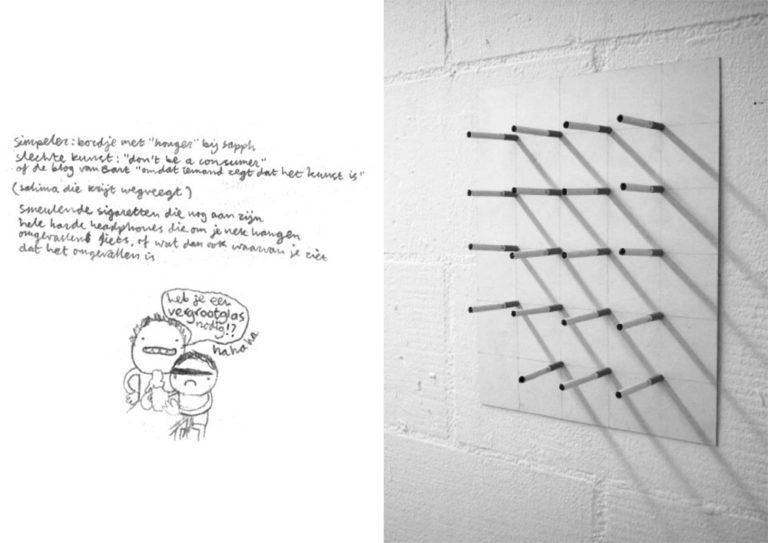 simpeler: bordje met "honger" bij sapph
slechte kunst: "don't be a consumer"
of de blog van Bart "omdat iemand zegt dat het kunst is"
(salima die krijt wegveegt)
smeulende sigaretten die nog aan zijn
hele harde headphones die om je nek hangen
omgevallen fiets, of wat dan ook waarvan je ziet
dat het omgevallen is
heb je een
vergrootglas
nodig!?
hahaha